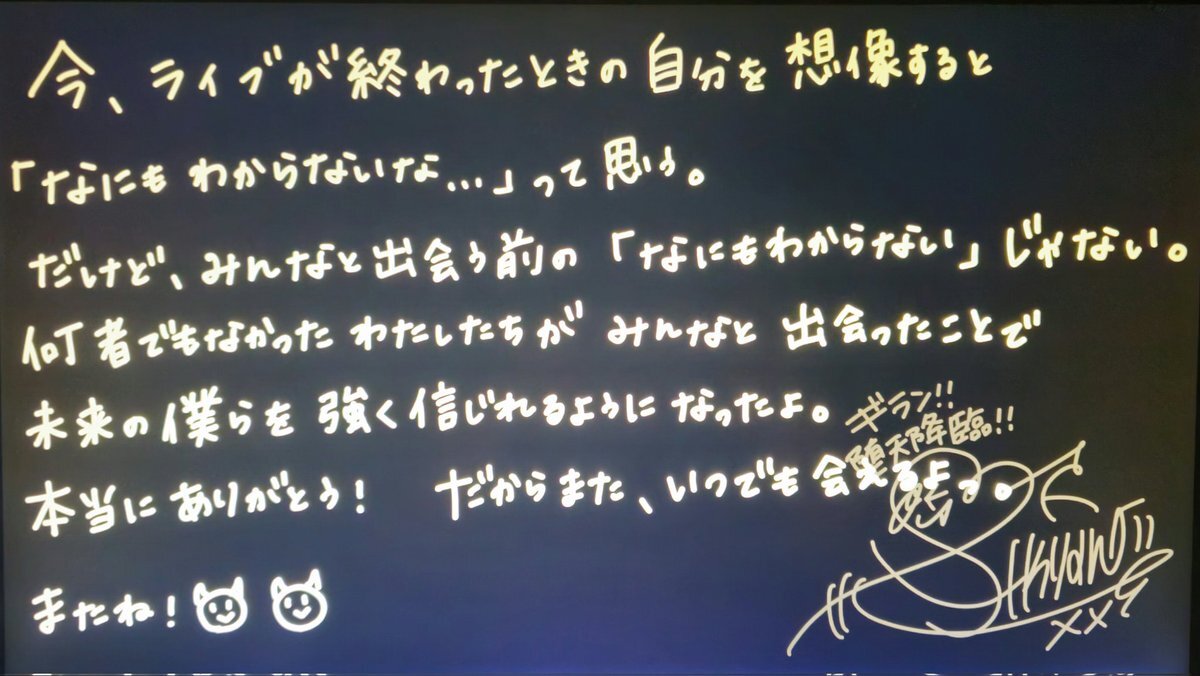 今、ライブが終わったときの自分を想像すると
「なにもわからないな…」って思う。
だけど、みんなと出会う前の「なにもわからない」じゃない。
何者でもなかったわたしたちがみんなと出会ったことで
未来の僕らを強く信じれるようになったよ。
本当にありがとう! だからまた、いつでも会えるよっ。
またね!
ギラン!!
堕天降臨!!